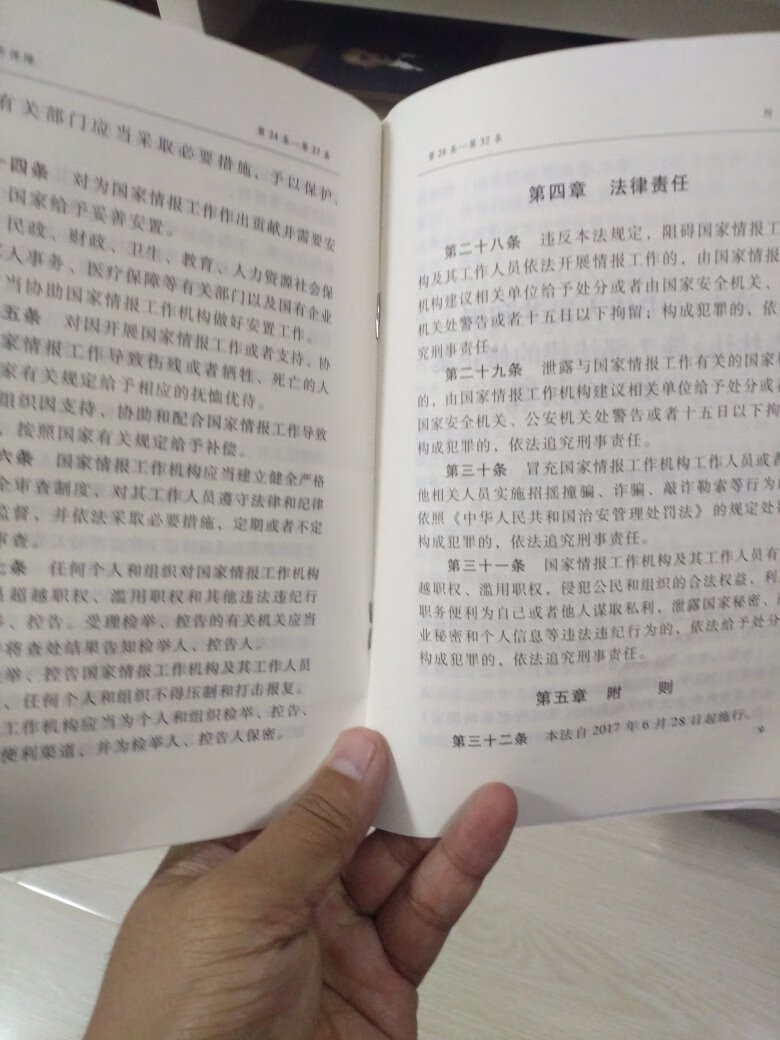 作保障
第24条—第27条
有关部门应当采取必要措施，予以保护，
十四条 对为国家情报工作作出贡献并需要安
国家给予妥善安置。
民政、财政、卫生、教育、人力资源社会保
人事务、医疗保障等有关部门以及国有企业
当协助国家情报工作机构做好安置工作。
五条 对因开展国家情报工作或者支持、协
家情报工作导致伤残或者牺牲、死亡的人
家有关规定给予相应的抚恤优待。
组织因支持、协助和配合国家情报工作导致
，按照国家有关规定给予补偿。
六条 国家情报工作机构应当建立健全严格
全审查制度，对其工作人员遵守法律和纪律
监督，并依法采取必要措施，定期或者不定
审查。
七条 任何个人和组织对国家情报工作机构
员超越职权、滥用职权和其他违法违纪行
、控告。受理检举、控告的有关机关应当
并将查处结果告知检举人、控告人。
检举、控告国家情报工作机构及其工作人员
，任何个人和组织不得压制和打击报复。
工作机构应当为个人和组织检举、控告、
便利渠道，并为检举人、控告人保密。
第28条—第32条
附
第四章 法律责任
第二十八条 违反本法规定，阻碍国家情报工
构及其工作人员依法开展情报工作的，由国家情报
机构建议相关单位给予处分或者由国家安全机关、
机关处警告或者十五日以下拘留；构成犯罪的，依
究刑事责任。
第二十九条 泄露与国家情报工作有关的国家秘
的，由国家情报工作机构建议相关单位给予处分或者
国家安全机关、公安机关处警告或者十五日以下拘
构成犯罪的，依法追究刑事责任。
第三十条 冒充国家情报工作机构工作人员或者
他相关人员实施招摇撞骗、诈骗、敲诈勒索等行为的
依照《中华人民共和国治安管理处罚法》的规定处
构成犯罪的，依法追究刑事责任。
第三十一条 国家情报工作机构及其工作人员有
越职权、滥用职权，侵犯公民和组织的合法权益，利
职务便利为自己或者他人谋取私利，泄露国家秘密、
业秘密和个人信息等违法违纪行为的，依法给予处分
构成犯罪的，依法追究刑事责任。
第五章 附 则
第三十二条 本法自2017年6月28日起施行。
9